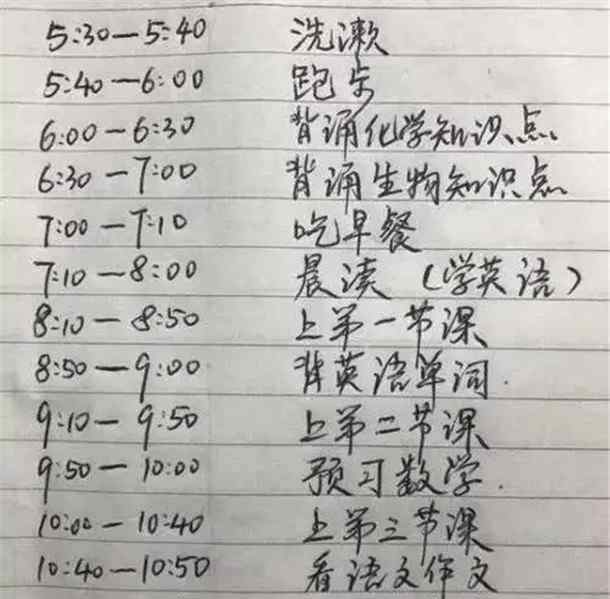 5:30—5:40 洗漱
5:40—6:00 跑步
6:00—6:30 背诵化学知识点
6:30—7:00 背诵生物知识点
7:00—7:10 吃早餐
7:10—8:00 晨读（学英语）
8:10—8:50 上第一节课
8:50—9:00 背英语单词.
9:10—9:50 上第二节课
9:50—10:00 预习数学.
10:00—10:40 上第三节课
10:40—10:50 看语文作文